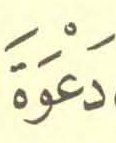 دَعْوَةً